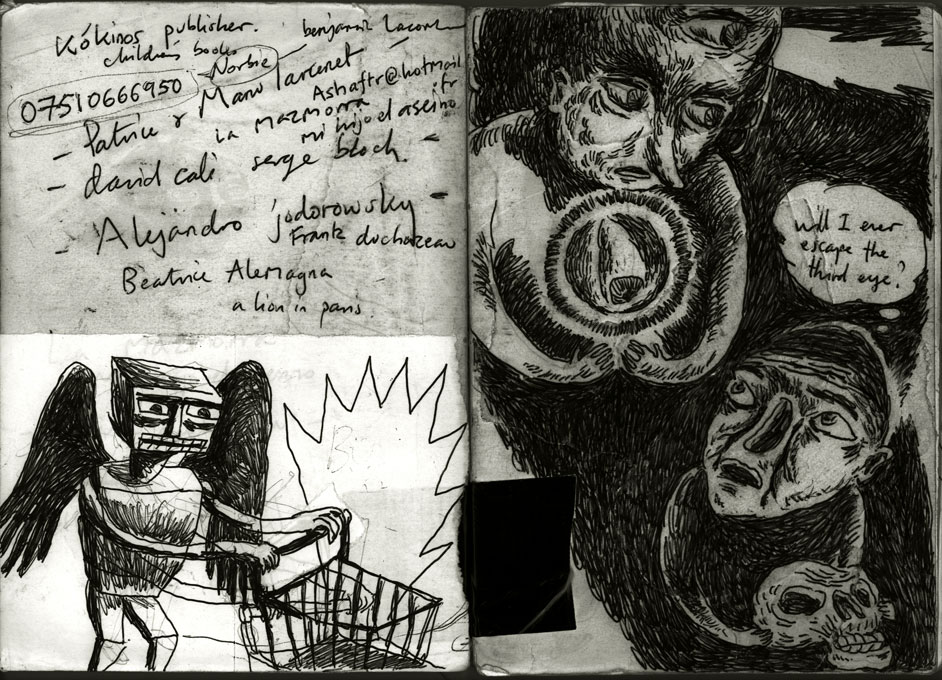 Kókinos publisher.
children's books
benjamin Lacombe
Norbie
07510666950
- Patrice & Manu Larcenet
Ashaftr@hotmail
.fr
la mazmorra
mi hijo el asesino
- david cali serge bloch. -
- Alejandro Jodorowsky -
Frantz duchazeau
Beatrice Alemagna
a lion in paris.
Will I ever
escape the
third eye?